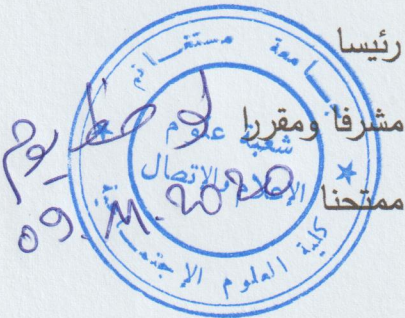 رئيسا
مشرفا ومقررا
ممتحنا
جامعة مستغانم
شعبة علوم
الإعلام والاتصال
كلية العلوم الإجتماعية
لوحظ يوم
09.11.2020